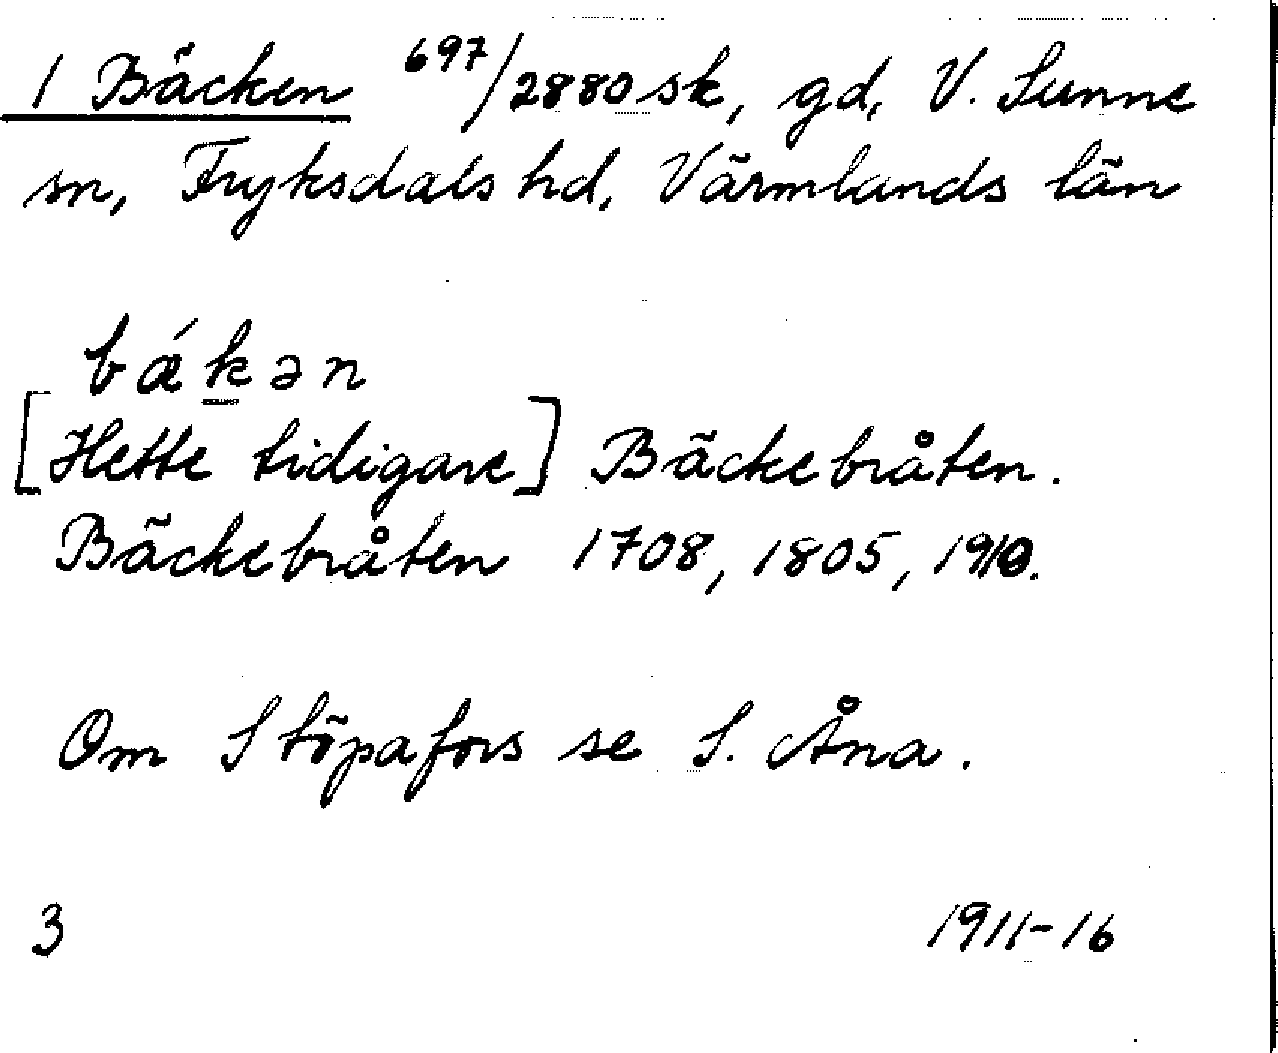 1 Bäcken 697/2880 sk, gd, V. Sunne
sn, Fryksdals hd, Värmlands län
bǽkən
[Hette tidigare] Bäckebråten.
Bäckebråten 1708, 1805, 1910.
Om Stöpafors se S. Åna.
3 1911-16